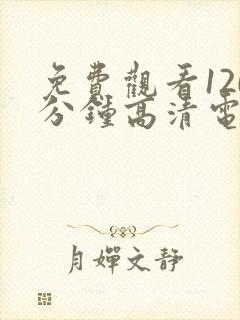 免費觀看120
分鐘高清電
月嬋文静